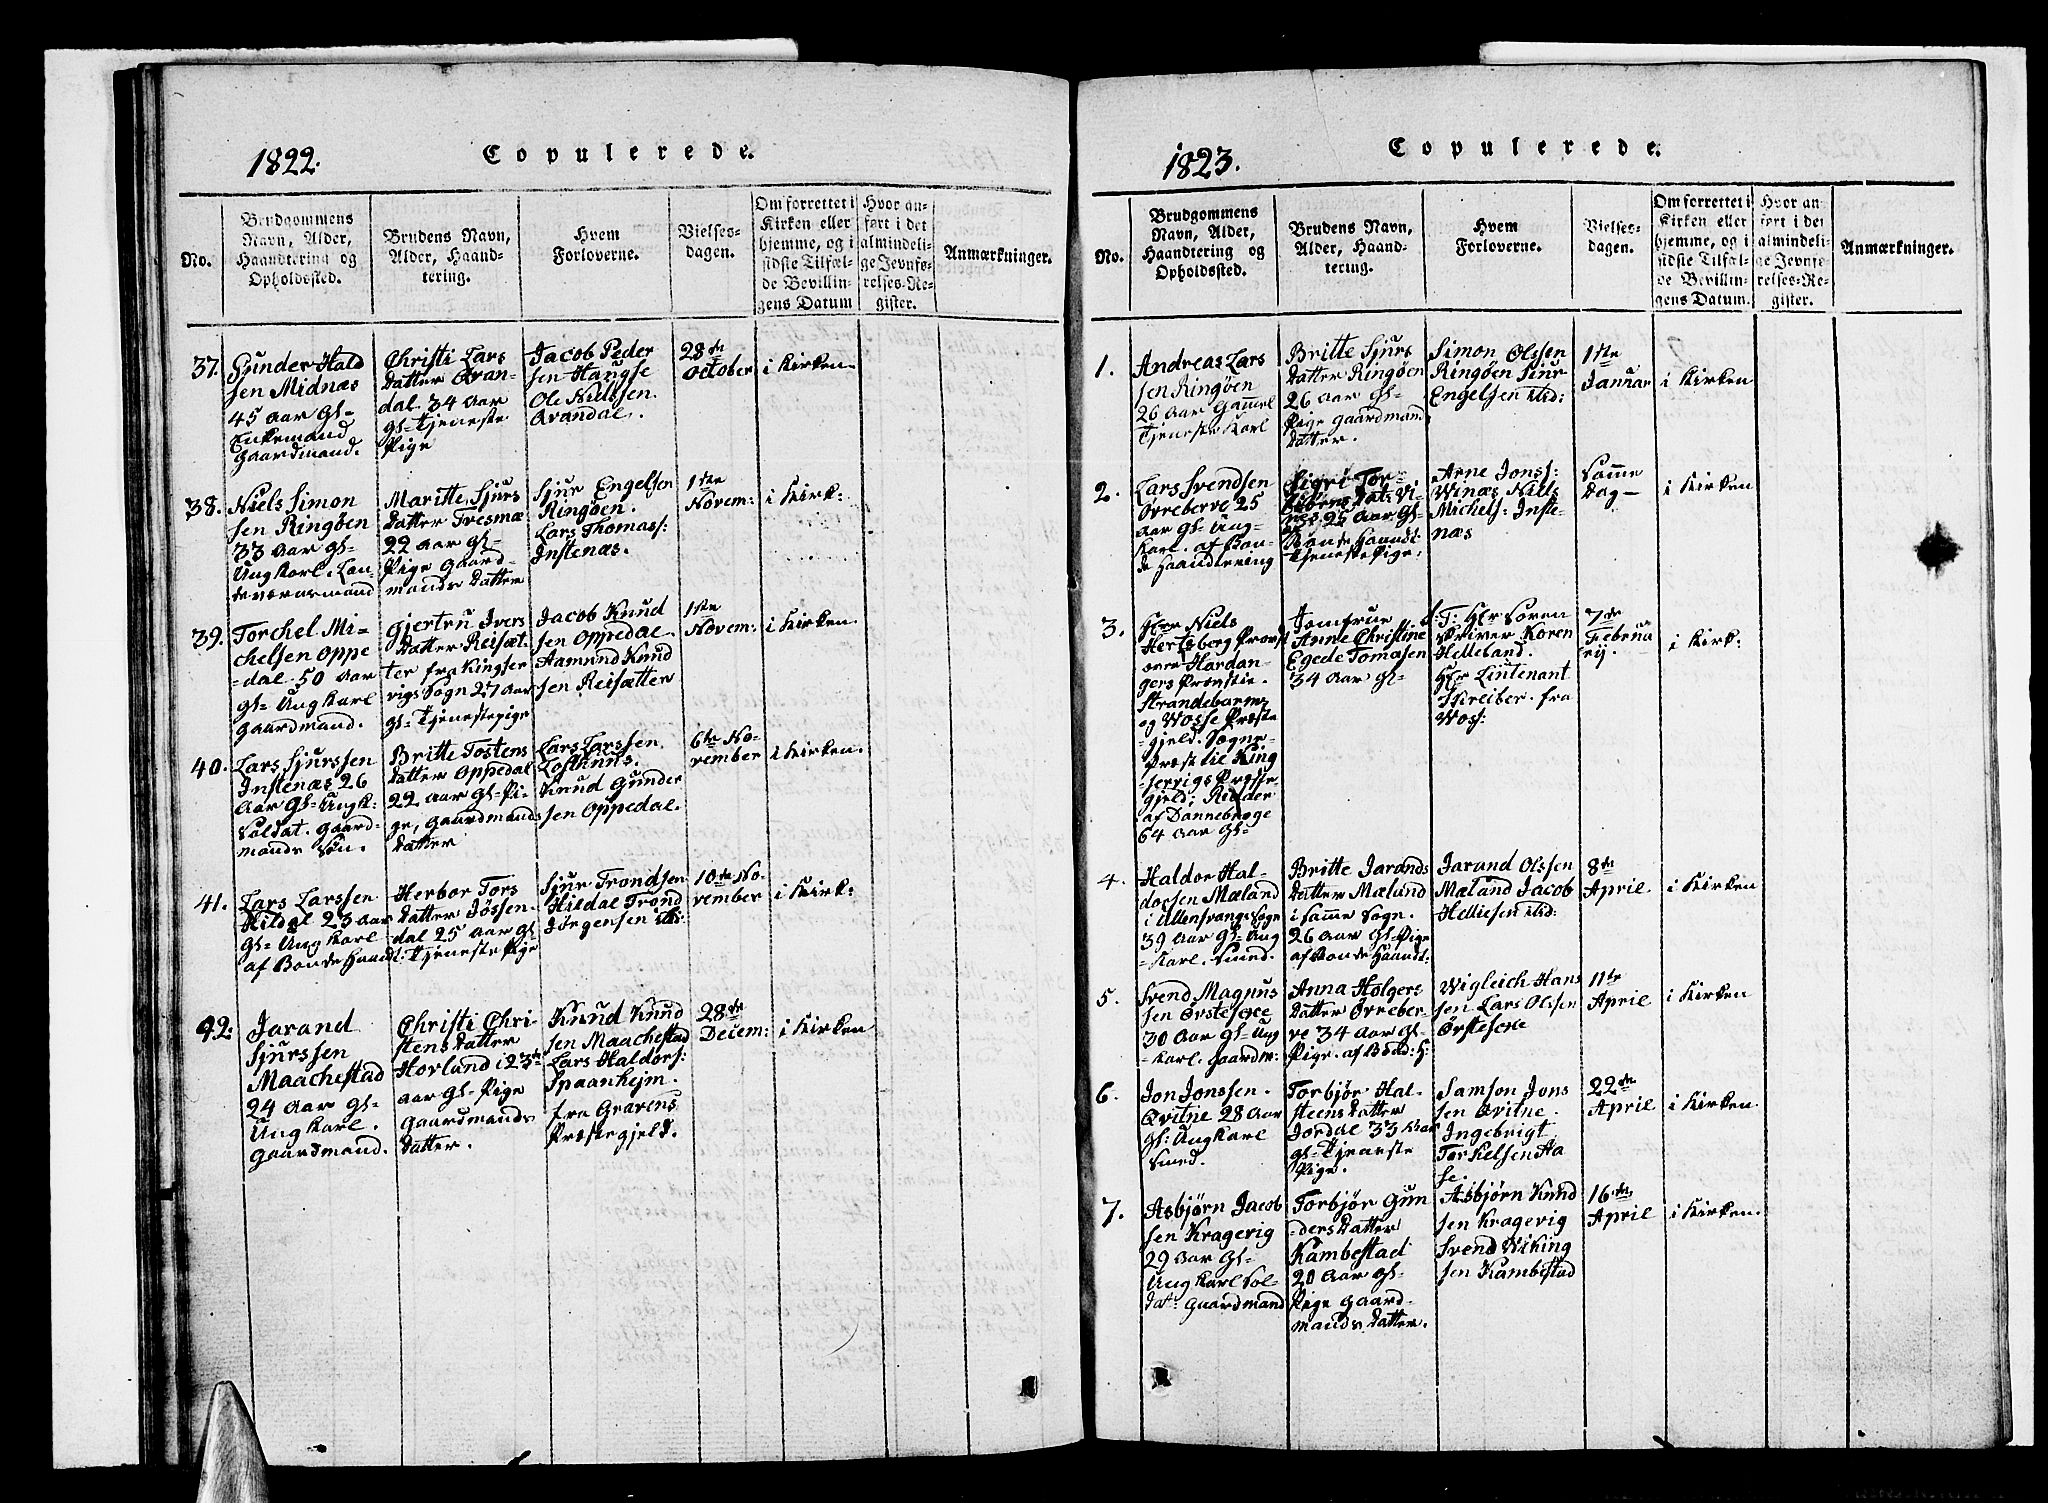 1822. Copulerede.
No.
Brudgommens
Navn, Alder,
Haandtering og
Opholdssted.
Brudens Navn,
Alder, Haand-
tering.
Hvem
Forloverne.
Vielses-
dagen.
Om forrettet i
Kirken eller
hjemme, og i
sidste Tilfæl-
de Bevillin-
gens Datum
Hvor an-
ført i det
almindeli-
ge Jevnfø-
relses-Re-
gister.
Anmærkninger.
37.
Gunder Hald
sen Midnæs
45 Aar Gl=
Enkemand
Gaardmand.
Christi Lars
Datter
dal 34 Aar
Gl= Tjeneste
Pige
Jacob Peder
sen Haugse
Ole Nielssen
28de
October
i Kirken.
38.
Niels Simon
sen Ringøen
33 Aar Gl=
Ungkarl. Lan-
deværnsmand
Maritte Sjurs
Datter Tresnæ
22 Aar Gl=
Pige Gaard-
mands Datter
Sjur Engelsen
Ringøen.
Lars Thomass:
Instenæs.
1ste
Novem:
i Kirk:
39.
Torchel Mi-
chelsen Oppe
=dal 50 Aar
Gl= Ungkarl
Gaardmand.
Gjertru Ivers
Datter Reisæt
ter fra Kingser
vigs Sogn 27 Aar
Gl= Tjenestepige
Jacob Knud
sen Oppedal.
Aamund Knud
sen Reisætter
1ste
Novem:
i Kirken.
40.
Lars Sjurssen
Instenæs 26
Aar Gl= Ungk:
Soldat. Gaard-
mands Søn.
Britte Tostens
Datter Oppedal
22 Aar Gl= Pi-
ge, Gaardmands
Datter
Lars Larssen
Lofthuus.
Knud Gunder
sen Oppedal.
6te No-
vember
i Kirken.
41.
Lars Larssen
Hildal 23 Aar
Gl= Ungkarl
af Bonde Haandt:
Herbor Tors
Datter Jøssen-
dal 25 Aar Gl
Tjeneste Pige
Sjur Trondsen
Hildal Trond
Jørgensen ibi:
10de No-
vember
i Kirk:
42.
Jarand
Sjurssen
Maachestad
24 Aar Gl=
Ungkarl.
Gaardmand.
Christi Chri-
stens Datter
Horland i 23de
Aar Gl= Pige
Gaardmands
Datter.
Knud Knud
sen Maachestad
Lars Haldors:
Spaanhejm.
fra Gravens
Præstegjeld.
28de
Decem:
i Kirken
1823. Copulerede.
No.
Brudgommens
Navn, Alder,
Haandtering og
Opholdssted.
Brudens Navn,
Alder, Haand-
tering.
Hvem
Forloverne.
Vielses-
dagen.
Om forrettet i
Kirken eller
hjemme, og i
sidste Tilfæl-
de Bevillin-
gens Datum.
Hvor an-
ført i det
almindeli-
ge Jevnfø-
relses-Re-
gister.
Anmærkninger.
1.
Andreas Lars
sen Ringøen
26 Aar Gammel
Tjeneste Karl
Britte Sjurs
Datter Ringøen
26 Aar Gl=
Pige Gaardmand
Datter.
Simon Olssen
Ringøen Siur
Engelsen ibid:
1ste
Januar
i Kirken
2.
Lars Svendsen
Øvreberve 25
Aar Gl= Ung-
Karl. af Bon-
de Haandtering
Sigri Tor-
25 Aar Gl=
Bonde Haandt:
Tjeneste Pige:
Arne Jonss:
Winæs Niels
Michels: Inste-
næs
Samme
Dag—
i Kirken
3.
Herr Niels
Hertsberg Provst
over Hardan-
gers Provstie.
Strandebarm,
og Wosse Præste
=gjeld. Sogne-
Præst til King
servigs Præste
gjeld; Ridder
af Dannebroge
64 Aar Gl=
Jomfrue
Anne Christine
Egede Tomasen
34 Aar Gl=
T: Hr Soren
skriver Koren
Helleland.
Hr Lieutenant
Skreiber. fra
Woss:
7de
Februa
rij.
i Kirk:
4.
Haldor Hal-
dorsen Mæland
i Ullensvangs Sogn
39 Aar Gl= Ung
=Karl. Smed.
Britte Jarands
Datter Mæland
i samme Sogn.
26 Aar Gl= Pige
af Bonde Haandt:
Jarand Olssen
Mæland Jacob
Helliesen ibid:
8de
April
i Kirken
5.
Svend Magnus
sen Øvstesese
30 Aar Gl= Ung
=Karl. Gaardm:
Anna Holgers
Datter Øvreber-
ve 34 Aar Gl=
Pige. af Bond: H:
Wigleich Hans
sen Lars Olssen
Østesese
11te
April
i Kirken
6.
Jon Jonssen.
Qvitne 28 Aar
Gl: Ungkarl
Smed.
Torbjør Hal-
steens Datter
Jordal 33 Aar
Gl= Tjeneste
Pige.
Samson Jons
sen Qvitne.
Ingebrigt
Torkelsen Aa
se.
22de
April
i Kirken.
7.
Asbjørn Jacob
sen Kragerig
29 Aar Gl=
Ungkarl Sol-
dat: Gaardmand
Torbjør Gun
=ders Datter
Kambestad
20 Aar Gl=
Pige Gaard-
mands Datter.
Asbjørn Knud
sen Kragevig
Svend Wiking
sen Kambestad
16de
April
i Kirken.